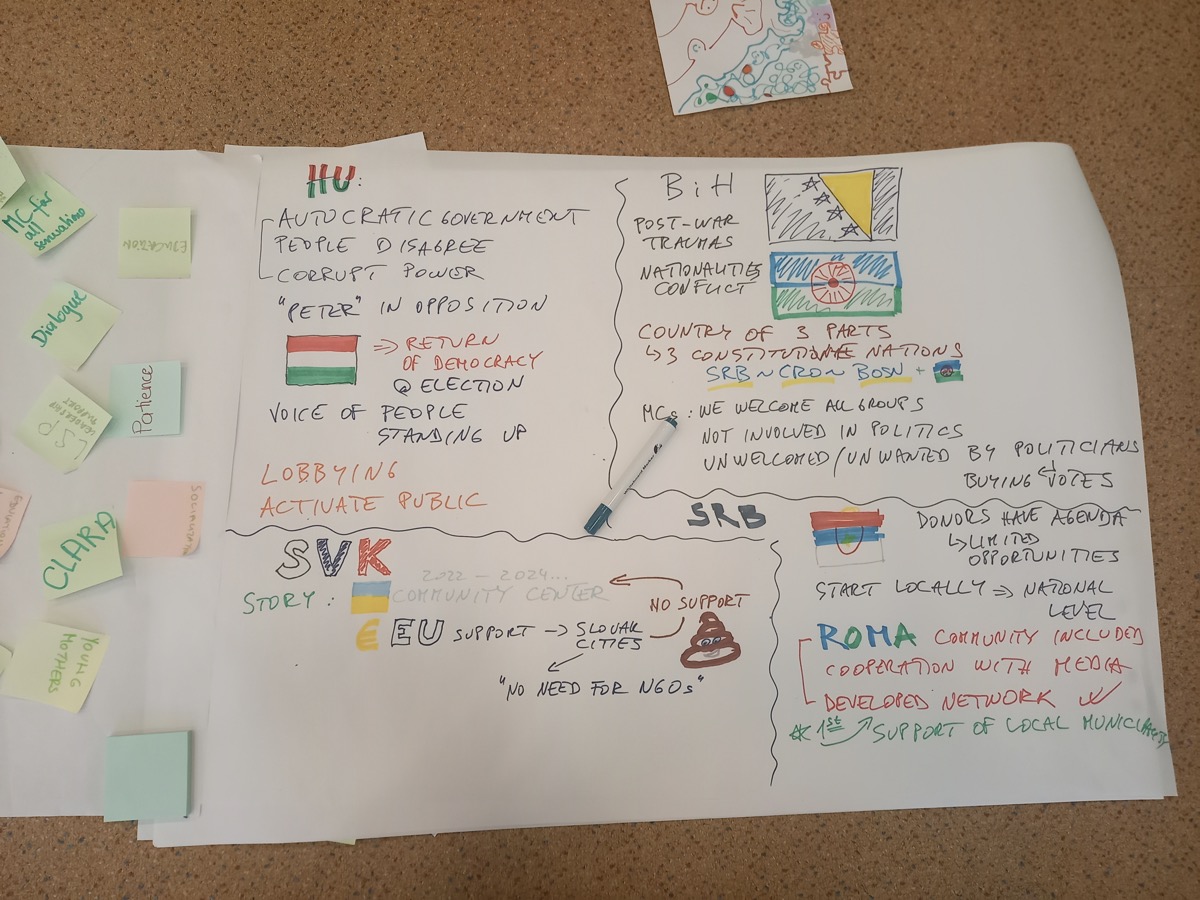 MC for
all
generations
EDUCATION
Dialogue
Patience
CLARA
YOUNG
MOTHERS
HU:
AUTOCRATIC GOVERNMENT
PEOPLE DISAGREE
CORRUPT POWER
"PETER" IN OPPOSITION
=> RETURN
OF DEMOCRACY
@ ELECTION
VOICE OF PEOPLE
STANDING UP
LOBBYING
ACTIVATE PUBLIC
BiH
POST-WAR
TRAUMAS
NATIONALITIES
CONFLICT
COUNTRY OF 3 PARTS
↳ 3 NATIONS
SRB ~ CRO ~ BOSN +
MCs: WE WELCOME ALL GROUPS
NOT INVOLVED IN POLITICS
UNWELCOMED/UNWANTED BY POLITICIANS
BUYING VOTES
SVK
2022 – 2024...
STORY: COMMUNITY CENTER
NO SUPPORT
€ EU SUPPORT → SLOVAK
CITIES
"NO NEED FOR NGOs"
SRB
DONORS HAVE AGENDA
↳ LIMITED
OPPORTUNITIES
START LOCALLY => NATIONAL
LEVEL
ROMA COMMUNITY INCLUDED
COOPERATION WITH MEDIA
DEVELOPED NETWORK
1st SUPPORT OF LOCAL